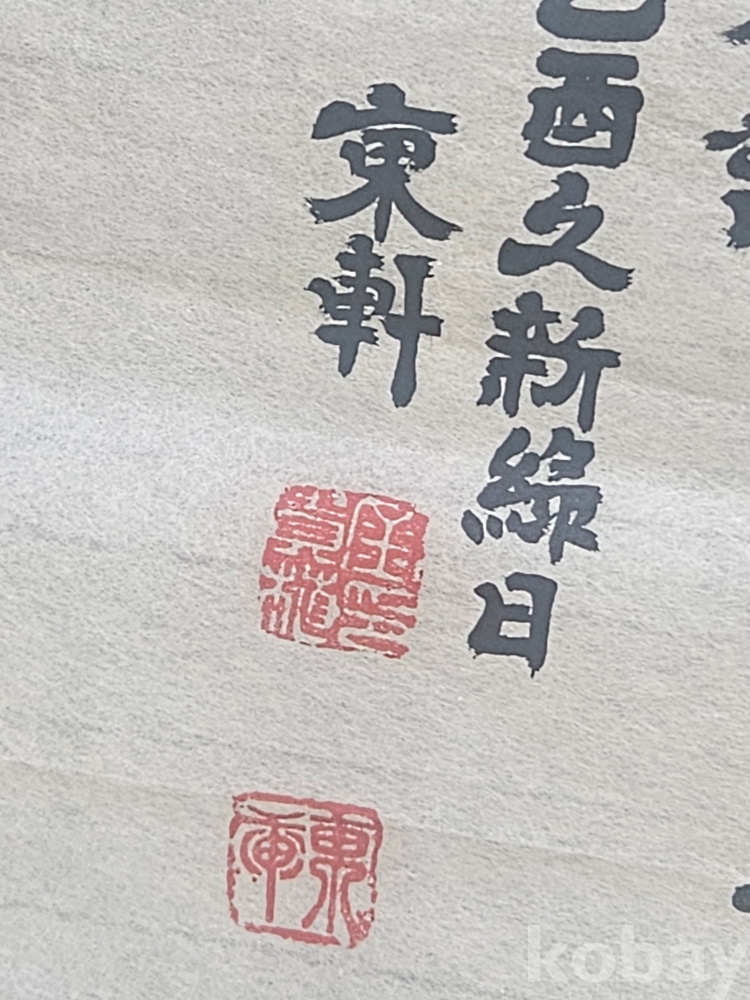 乙酉之新綠日
東軒
東軒
kobay